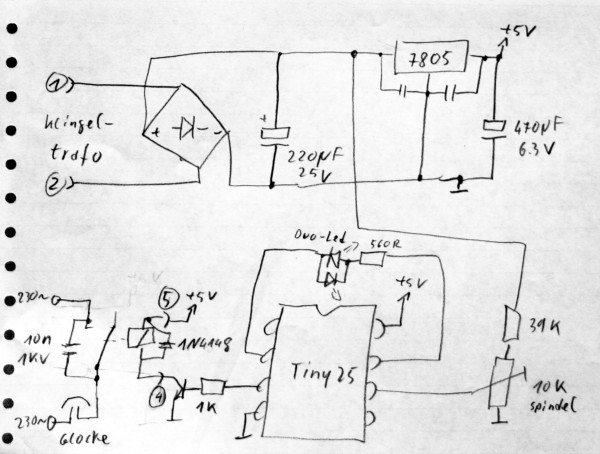 +5V
7805
1
Klingel-
trafo
2
+
-
+
220µF
25V
470µF
6.3V
Duo-Led
560R
+5V
230~
5
+5V
10n
1KV
1N4148
39K
Tiny25
4
1K
10K
spindel
230~
Glocke